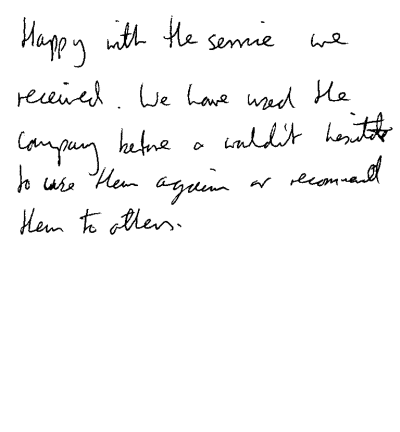 Happy with the service we
received. We have used the
company before & wouldn't hesitate
to use them again or recommend
them to others.